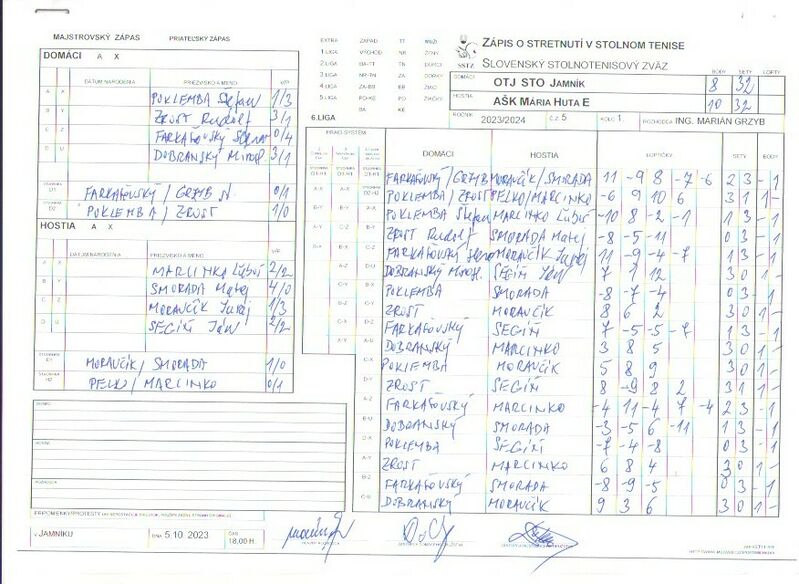 MAJSTROVSKÝ ZÁPAS PRIATEĽSKÝ ZÁPAS
DOMÁCI A X
DÁTUM NARODENIA PRIEZVISKO A MENO V/P
A X POKLEMBA Štefan 1/3
B Y ZROST Rudolf 3/1
C Z FARKAŠOVSKÝ 0/4
D U DOBRANSKÝ Mirosl. 3/1
FARKAŠOVSKÝ / GRZYB M. 0/1
POKLEMBA / ZROST 1/0
HOSTIA A X
DÁTUM NARODENIA PRIEZVISKO A MENO V/P
A X MARCINKO Ľuboš 2/2
B Y SMORADA Matej 4/0
C Z MORAVČÍK Juraj 1/3
D U SEGIŇ Ján 2/2
MORAVČÍK / SMORADA 1/0
PEĽKO / MARCINKO 0/1
PRIPOMIENKY/PROTESTY
V JAMNÍKU DŇA 5.10. 2023 ČAS 18,00 H.
EXTRA ZÁPAD TT MUŽI
1.LIGA VÝCHOD NR ŽENY
2.LIGA BA-TT TN
3.LIGA NR-TN ZA DORKY
4.LIGA ZA-BB KE ŽIACI
5.LIGA PO-KE PO ŽIAČKY
BA KE
6.LIGA
SSTZ
ZÁPIS O STRETNUTÍ V STOLNOM TENISE
SLOVENSKÝ STOLNOTENISOVÝ ZVÄZ
BODY SETY LOPTY
DOMÁCI OTJ STO JAMNÍK 8 32
HOSTIA AŠK MÁRIA HUTA E 10 32
ROČNÍK 2023/2024 Č.Z 5 KOLO 1. ROZHODCA ING. MARIÁN GRZYB
HRACÍ SYSTÉM DOMÁCI HOSTIA LOPTIČKY SETY BODY
FARKAŠOVSKÝ / GRZYB MORAVČÍK / SMORADA 11 -9 8 -7 -6 2 3 - 1
POKLEMBA / ZROST PEĽKO / MARCINKO -6 9 10 6 3 1 1 -
POKLEMBA Štefan MARCINKO Ľuboš -10 8 -2 -1 1 3 - 1
ZROST Rudolf SMORADA Matej -8 -5 -11 0 3 - 1
FARKAŠOVSKÝ MORAVČÍK Juraj 11 -9 -4 -7 1 3 - 1
DOBRANSKÝ Mirosl. SEGIŇ Ján 7 1 12 3 0 1 -
POKLEMBA SMORADA -8 -7 -4 0 3 - 1
ZROST MORAVČÍK 8 6 2 3 0 1 -
FARKAŠOVSKÝ SEGIŇ 7 -5 -5 -7 1 3 - 1
DOBRANSKÝ MARCINKO 3 8 5 3 0 1 -
POKLEMBA MORAVČÍK 5 8 9 3 0 1 -
ZROST SEGIŇ 8 -9 8 2 3 1 1 -
FARKAŠOVSKÝ MARCINKO -4 11 -4 7 -4 2 3 - 1
DOBRANSKÝ SMORADA -3 -5 6 -11 1 3 - 1
POKLEMBA SEGIŇ -7 -4 -8 0 3 - 1
ZROST MARCINKO 6 8 4 3 0 1 -
FARKAŠOVSKÝ SMORADA -8 -9 -5 0 3 - 1
DOBRANSKÝ MORAVČÍK 9 3 6 3 0 1 -